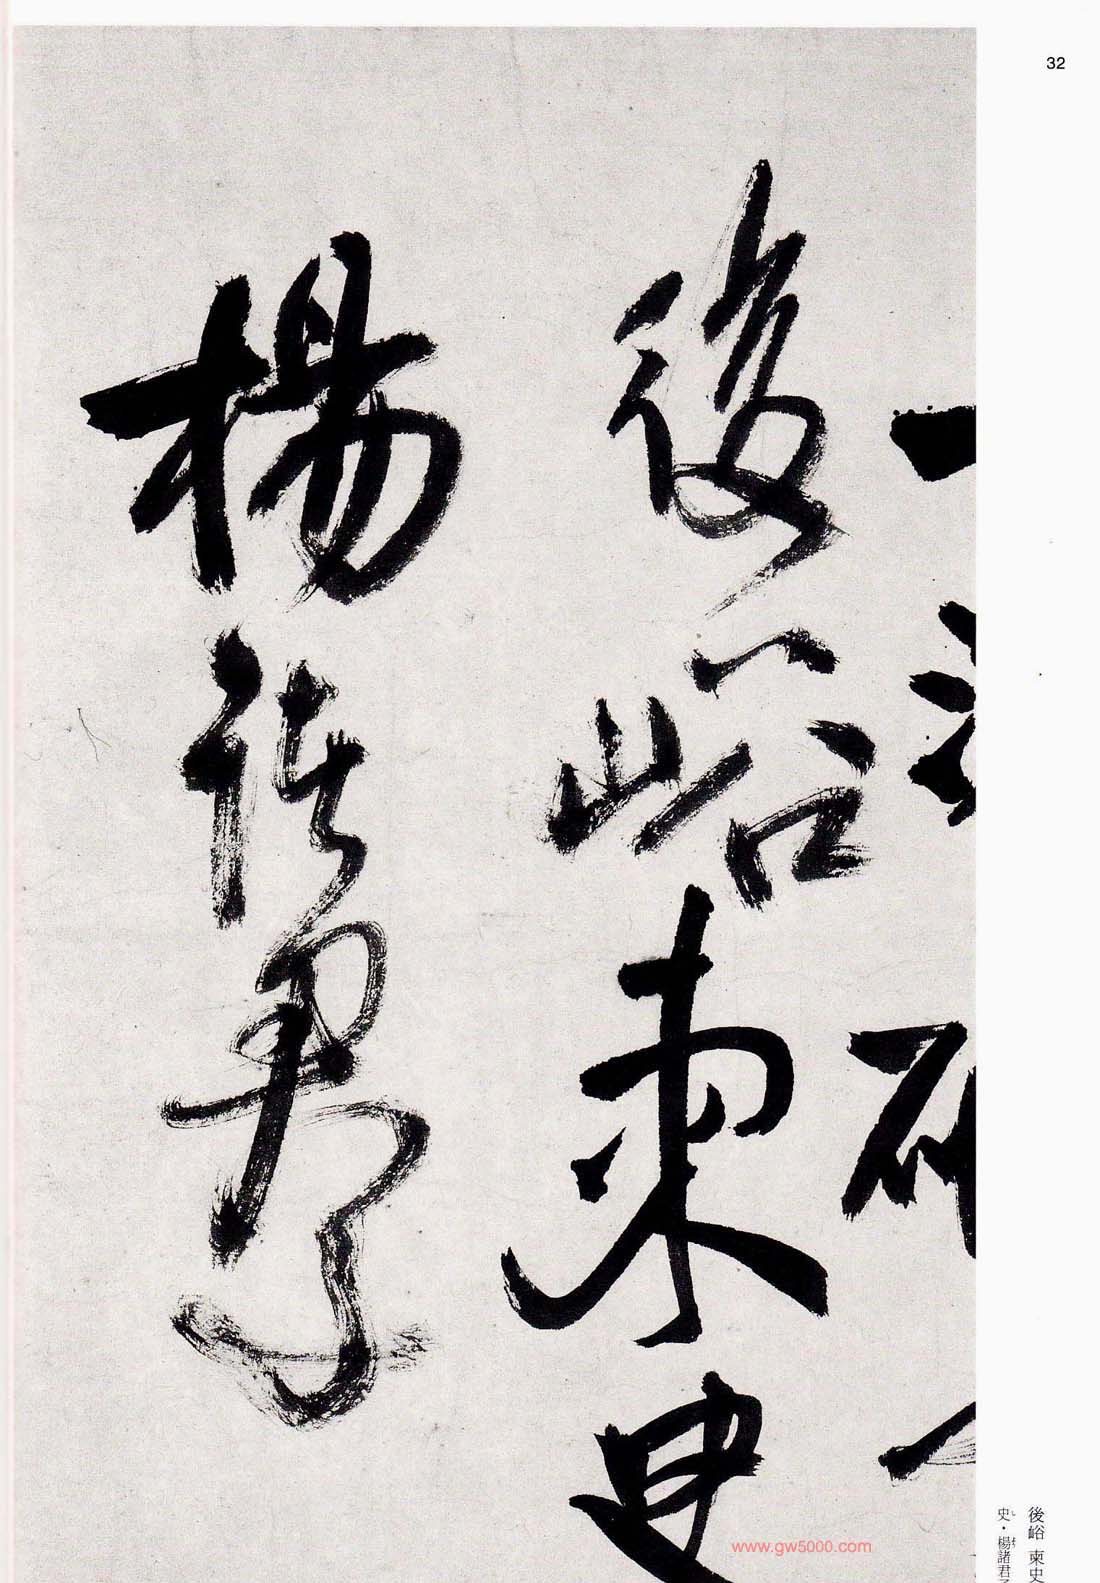 32
後峪柬史
楊諸君子
後峪 柬史
史・楊諸君子
www.gw5000.com